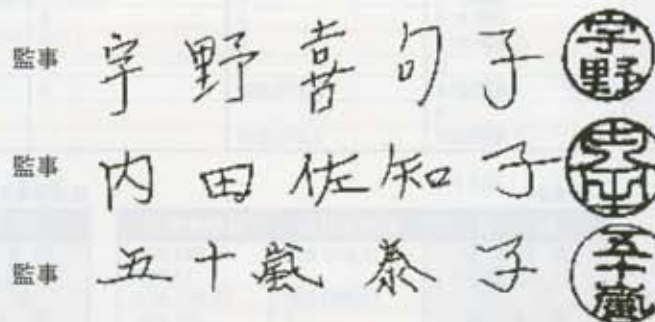 監事 宇野喜句子 宇野
監事 内田佐知子
監事 五十嵐泰子 五十嵐